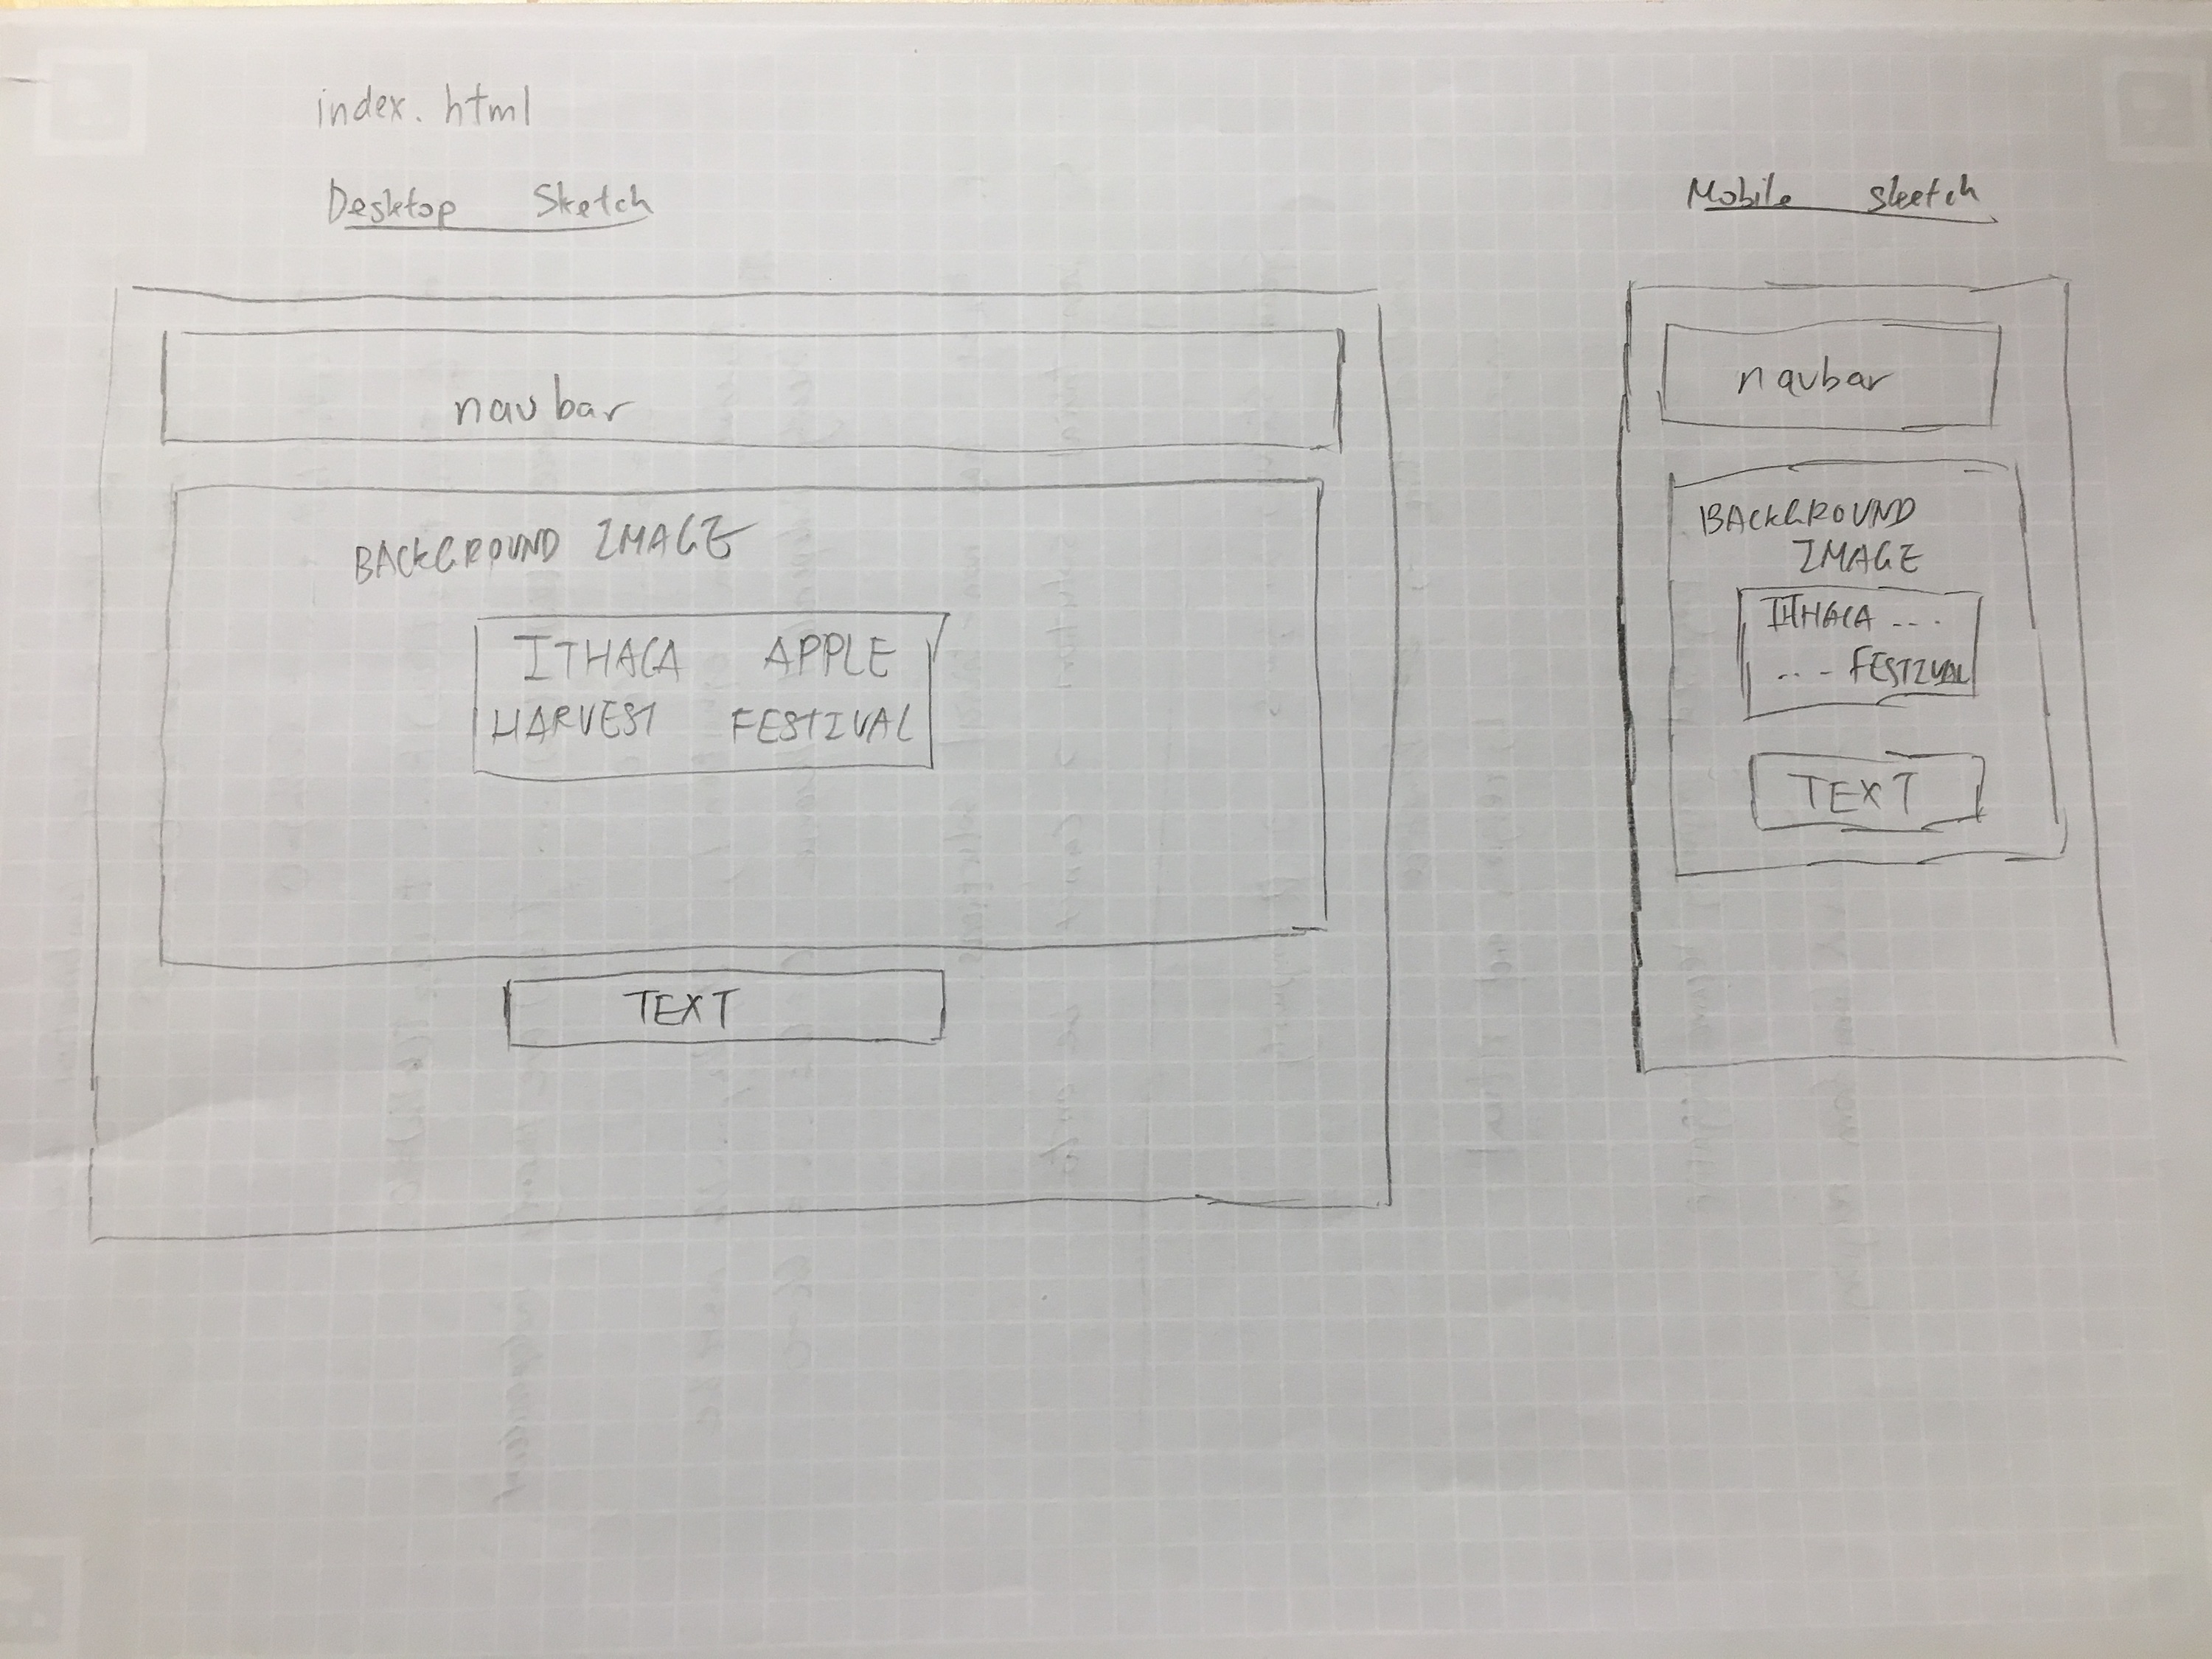 index.html
Desktop Sketch
navbar
BACKGROUND IMAGE
ITHACA APPLE
HARVEST FESTIVAL
TEXT
Mobile sketch
navbar
BACKGROUND
IMAGE
ITHACA ...
... FESTIVAL
TEXT